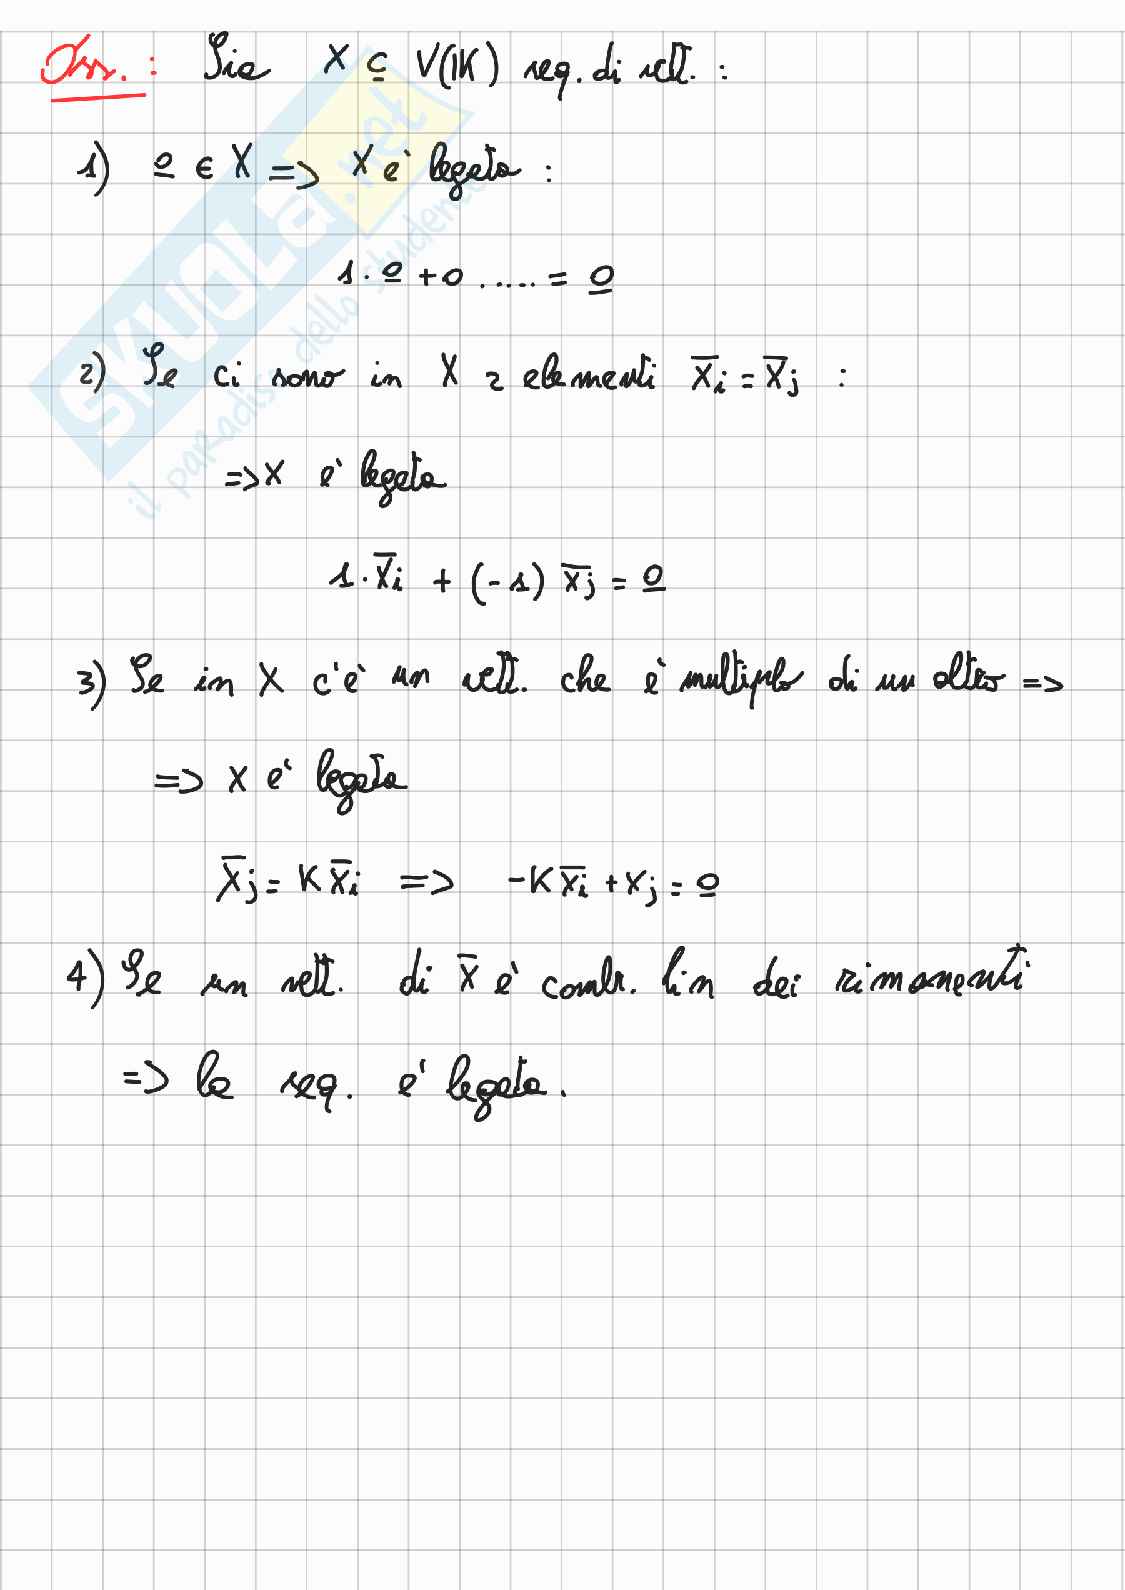 Oss.: Sia X ⊆ V(K) seq. di vett. :
1) 0 ∈ X => X e' legata :
1 · 0 + 0 ..... = 0
2) Se ci sono in X 2 elementi X̅i = X̅j :
=> X e' legata
1 · X̅i + (-1) X̅j = 0
3) Se in X c'e' un vett. che e' multiplo di un altro =>
=> X e' legata
X̅j = K X̅i => -K X̅i + Xj = 0
4) Se un vett. di X̅ e' comb. lin dei rimanenti
=> la seq. e' legata.
SKUOLA.net
il paradiso dello studente